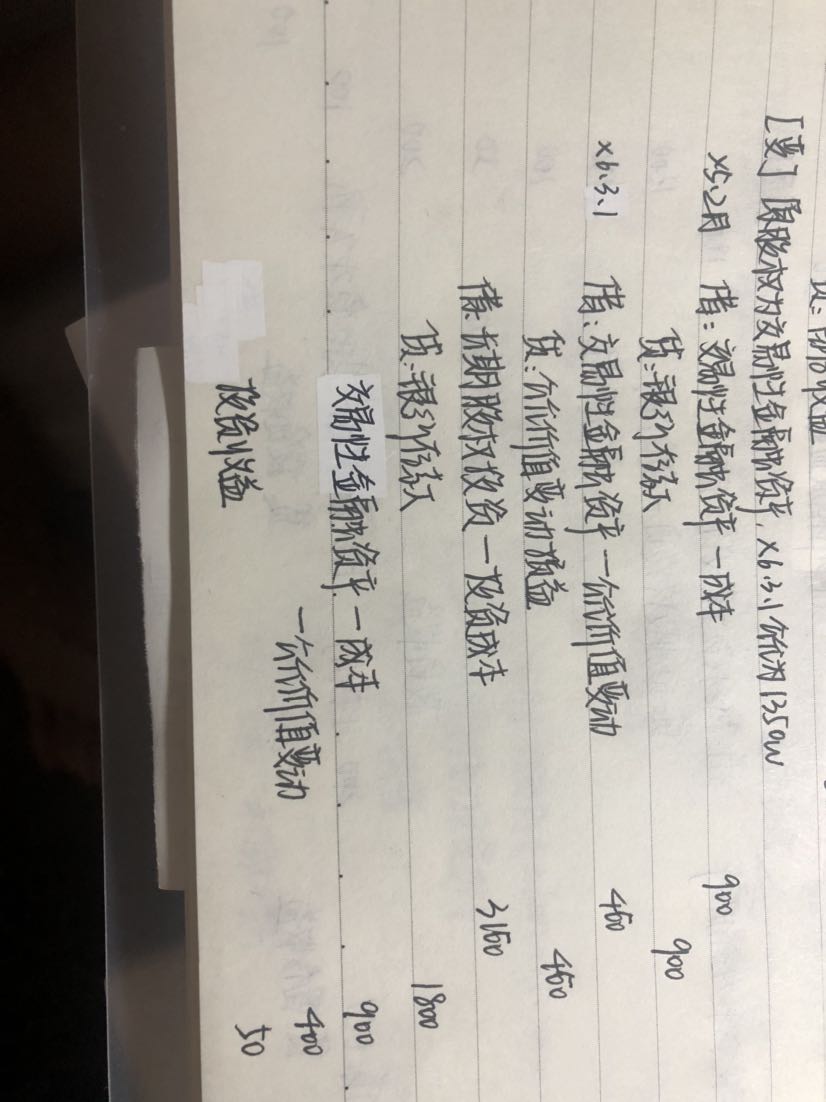 [变] 原股权为交易性金融资产, x6.3.1 公允为1350W
x5.2月 借:交易性金融资产—成本 900
贷:银行存款 900
x6.3.1 借:交易性金融资产—公允价值变动 450
贷:公允价值变动损益 450
借:长期股权投资—投资成本 3150
贷:银行存款 1800
交易性金融资产—成本 900
—公允价值变动 400
投资收益 50